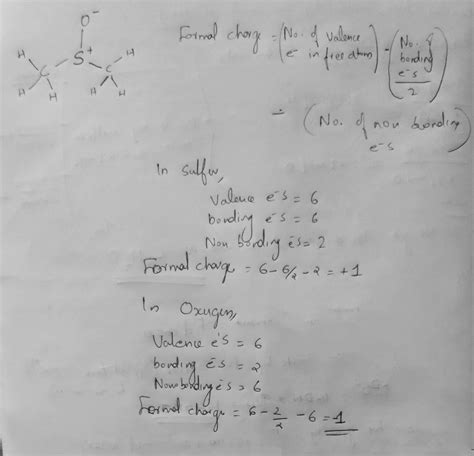 O⁻
H H
H C S⁺ C H
H H
Formal charge = (No. of valence e⁻ in free atom) - (No. of bonding e⁻s / 2)
- (No. of non bonding e⁻s)
In sulfur,
Valence e⁻s = 6
bonding e⁻s = 6
Non bonding e⁻s = 2
Formal charge = 6 - 6/2 - 2 = +1
In Oxygen,
Valence e⁻s = 6
bonding e⁻s = 2
Nonbonding e⁻s = 6
Formal charge = 6 - 2/2 - 6 = 1